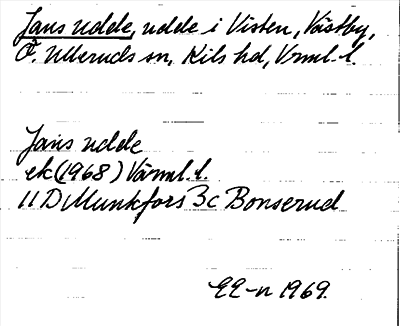 Jans udde, udde i Visten, Västby,
Ö. Ulleruds sn, Kils hd, Vrml. l.
Jans udde
ek (1968) Värml. l.
11 D Munkfors 3c Bonserud
EE-n 1969.